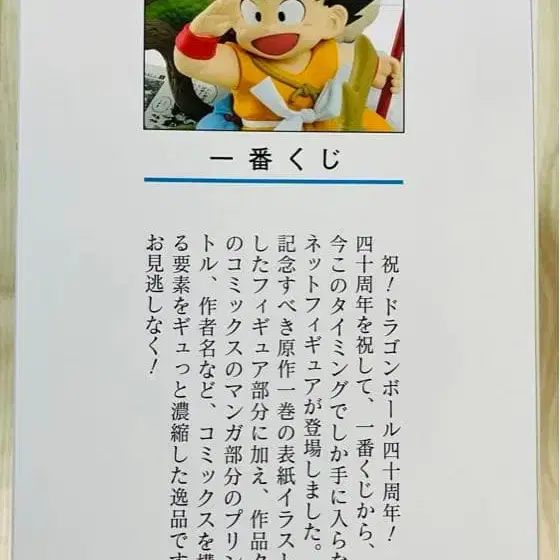 一番くじ
祝!ドラゴンボール四十周年!
四十周年を祝して、一番くじから、
今このタイミングでしか手に入らな
ネットフィギュアが登場しました。
記念すべき原作一巻の表紙イラスト
したフィギュア部分に加え、作品タ
のコミックスのマンガ部分のプリン
トル、作者名など、コミックスを構
る要素をギュっと濃縮した逸品です
お見逃しなく!